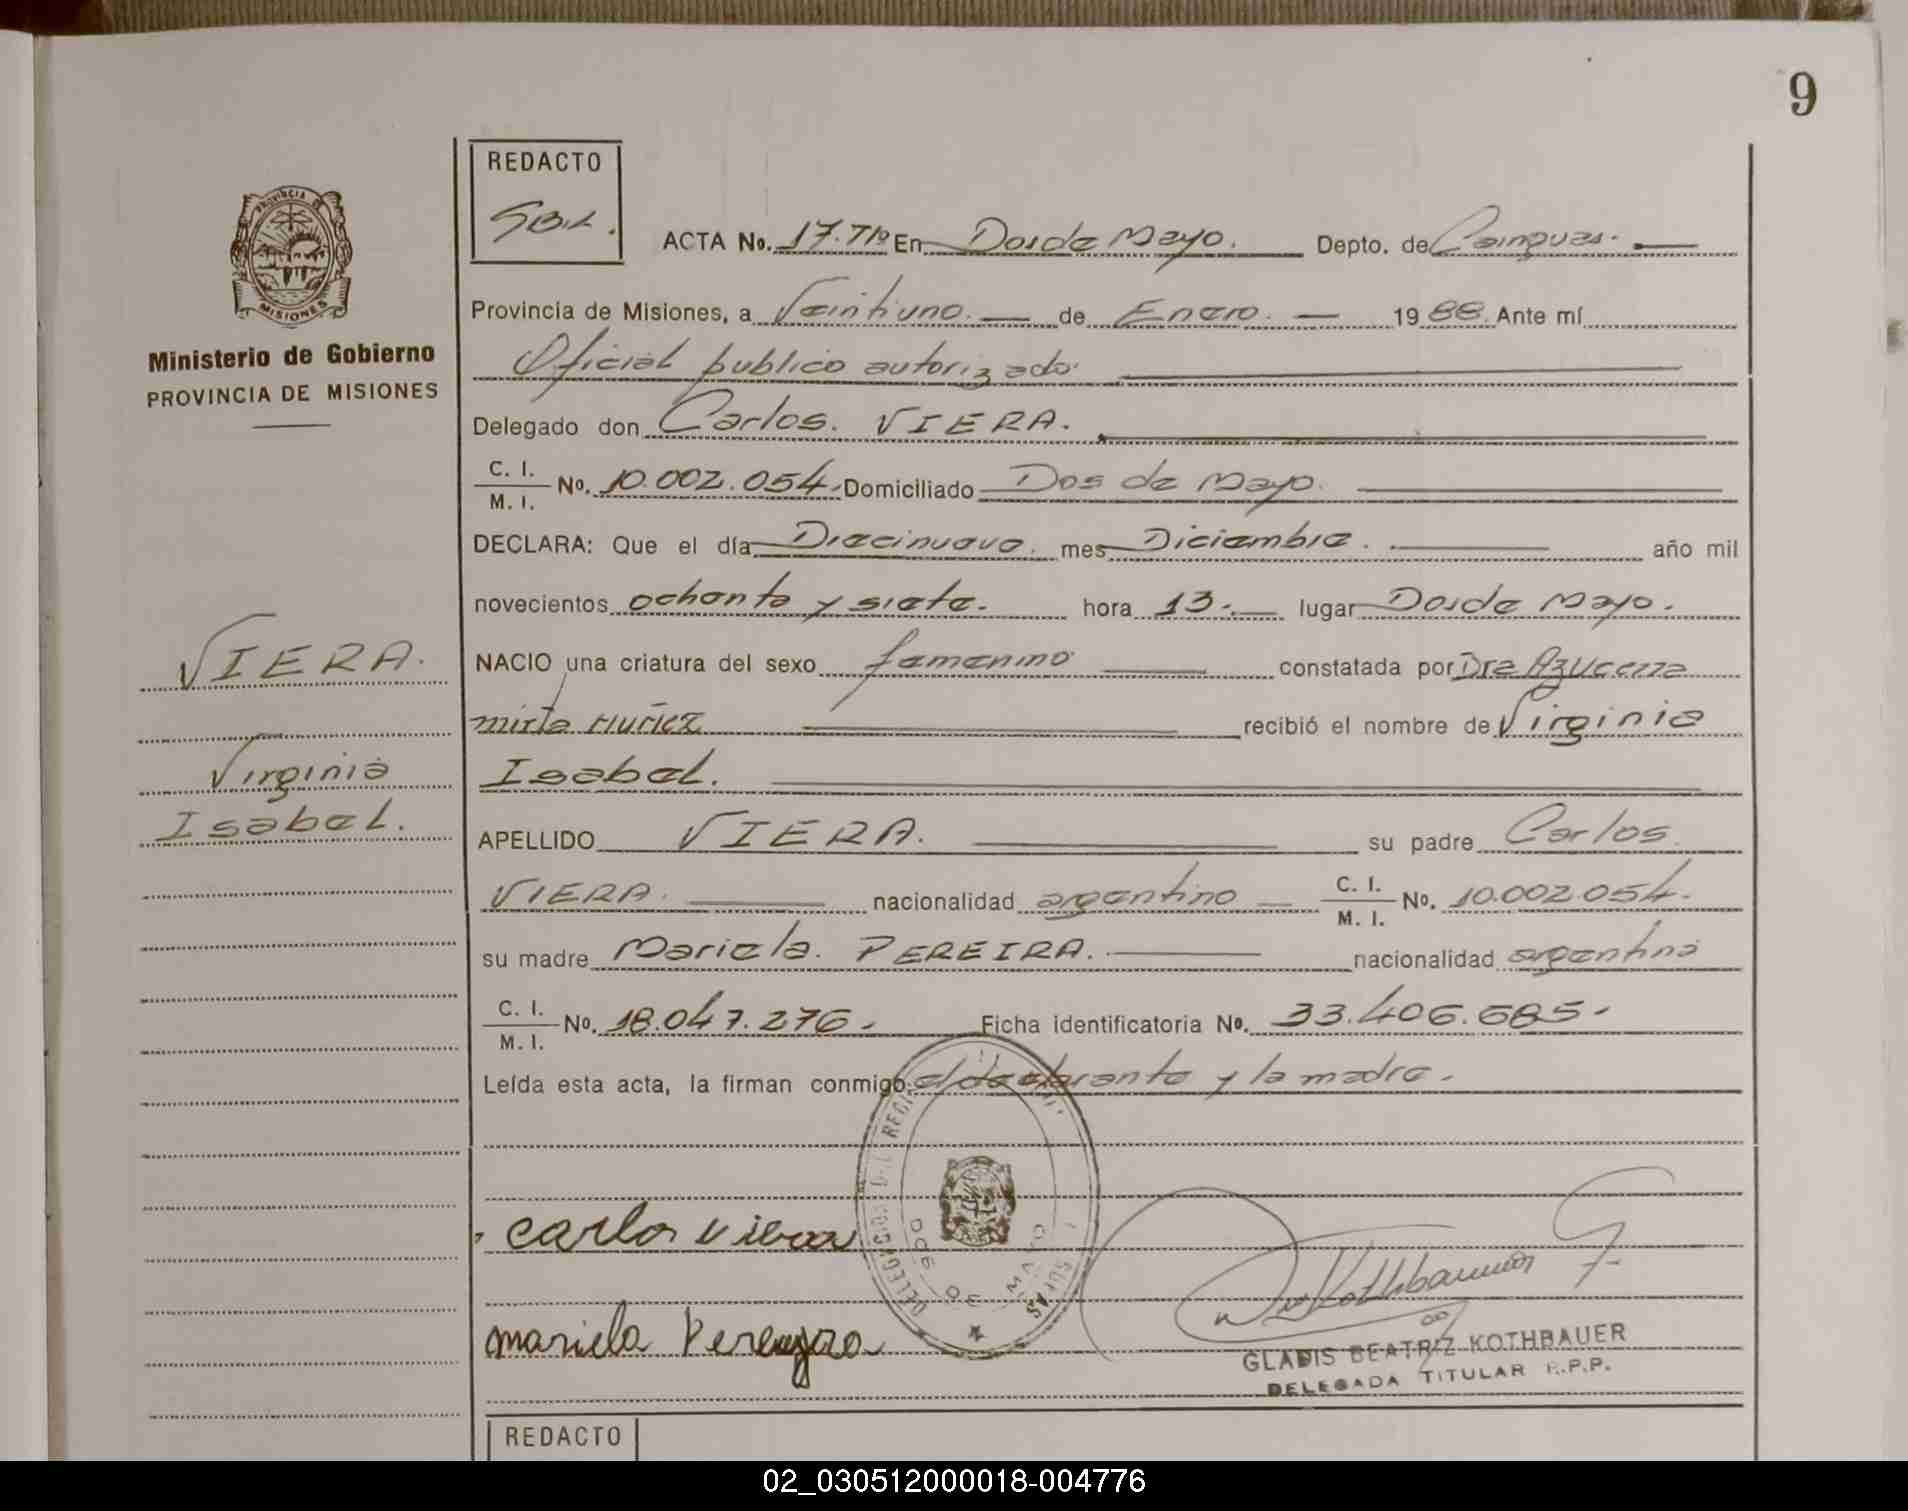 9
REDACTO
ACTA No. 17. Tº En Dos de Mayo. Depto. de Cainguas.
PROVINCIA DE
MISIONES
Provincia de Misiones, a Veintiuno. de Enero. 1988. Ante mí
Ministerio de Gobierno
PROVINCIA DE MISIONES
Oficial publico autorizado
Delegado don Carlos. VIERA.
C. I. / M. I. No. 10.002.054. Domiciliado Dos de Mayo.
DECLARA: Que el día Diecinueve. mes Diciembre. año mil
novecientos ochenta y siete. hora 13. lugar Dos de Mayo.
VIERA.
NACIO una criatura del sexo femenino constatada por Dra Azucena
mirta Nuñez recibió el nombre de Virginia
Virginia
Isabel.
Isabel.
APELLIDO VIERA. su padre Carlos.
VIERA. nacionalidad argentino C. I. / M. I. No. 10.002.054.
su madre Mariela. PEREIRA. nacionalidad argentina
C. I. / M. I. No. 18.047.276. Ficha identificatoria No. 33.406.685.
Leída esta acta, la firman conmigo: el declarante y la madre.
DOS DE MAYO
Carlos Viera
mariela Pereyra
GLADIS BEATRIZ KOTHBAUER
DELEGADA TITULAR R.P.P.
REDACTO
02_030512000018-004776